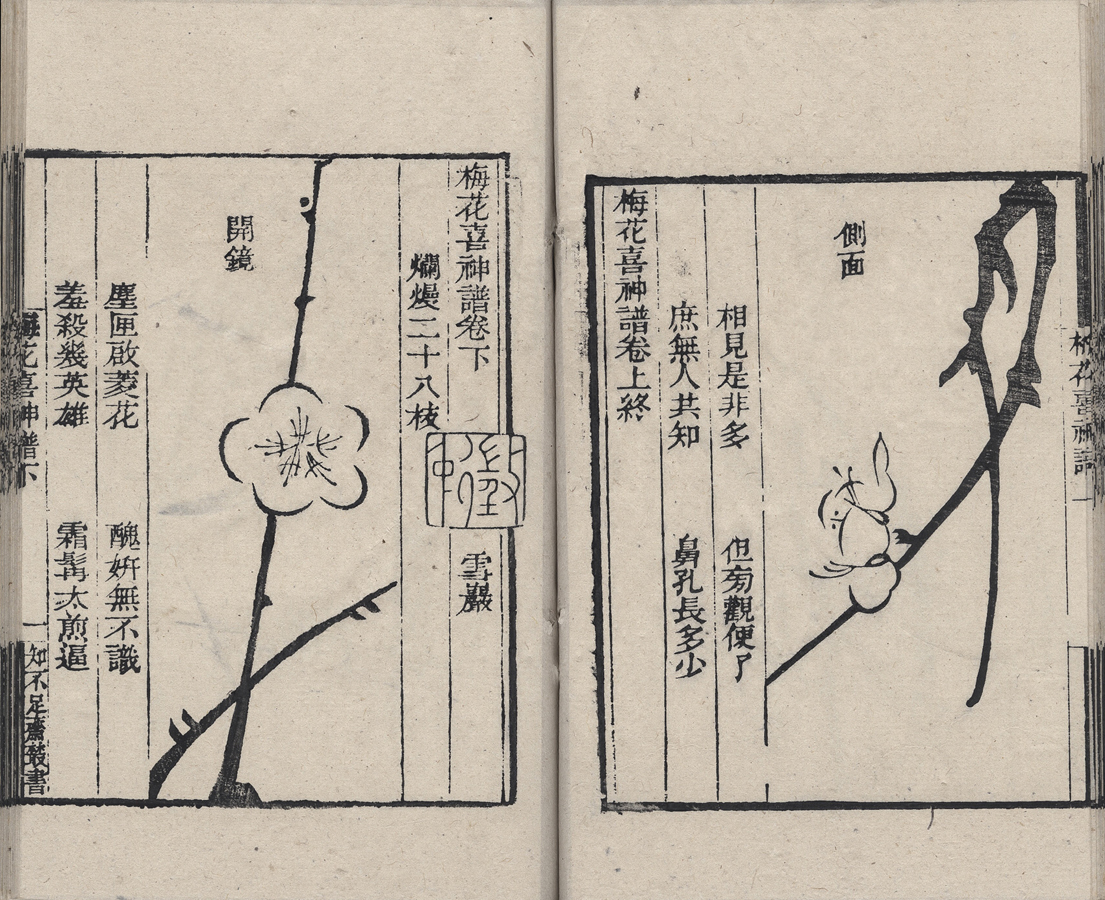 側面
相見是非多 但旁觀便了
庶無人共知 鼻孔長多少
梅花喜神譜卷上終
梅花喜神譜卷下 雪巖
爛熳二十八枝
開鏡
塵匣啟菱花 醜妍無不識
羞殺幾英雄 霜髯太煎逼
梅花喜神譜下 一 知不足齋叢書